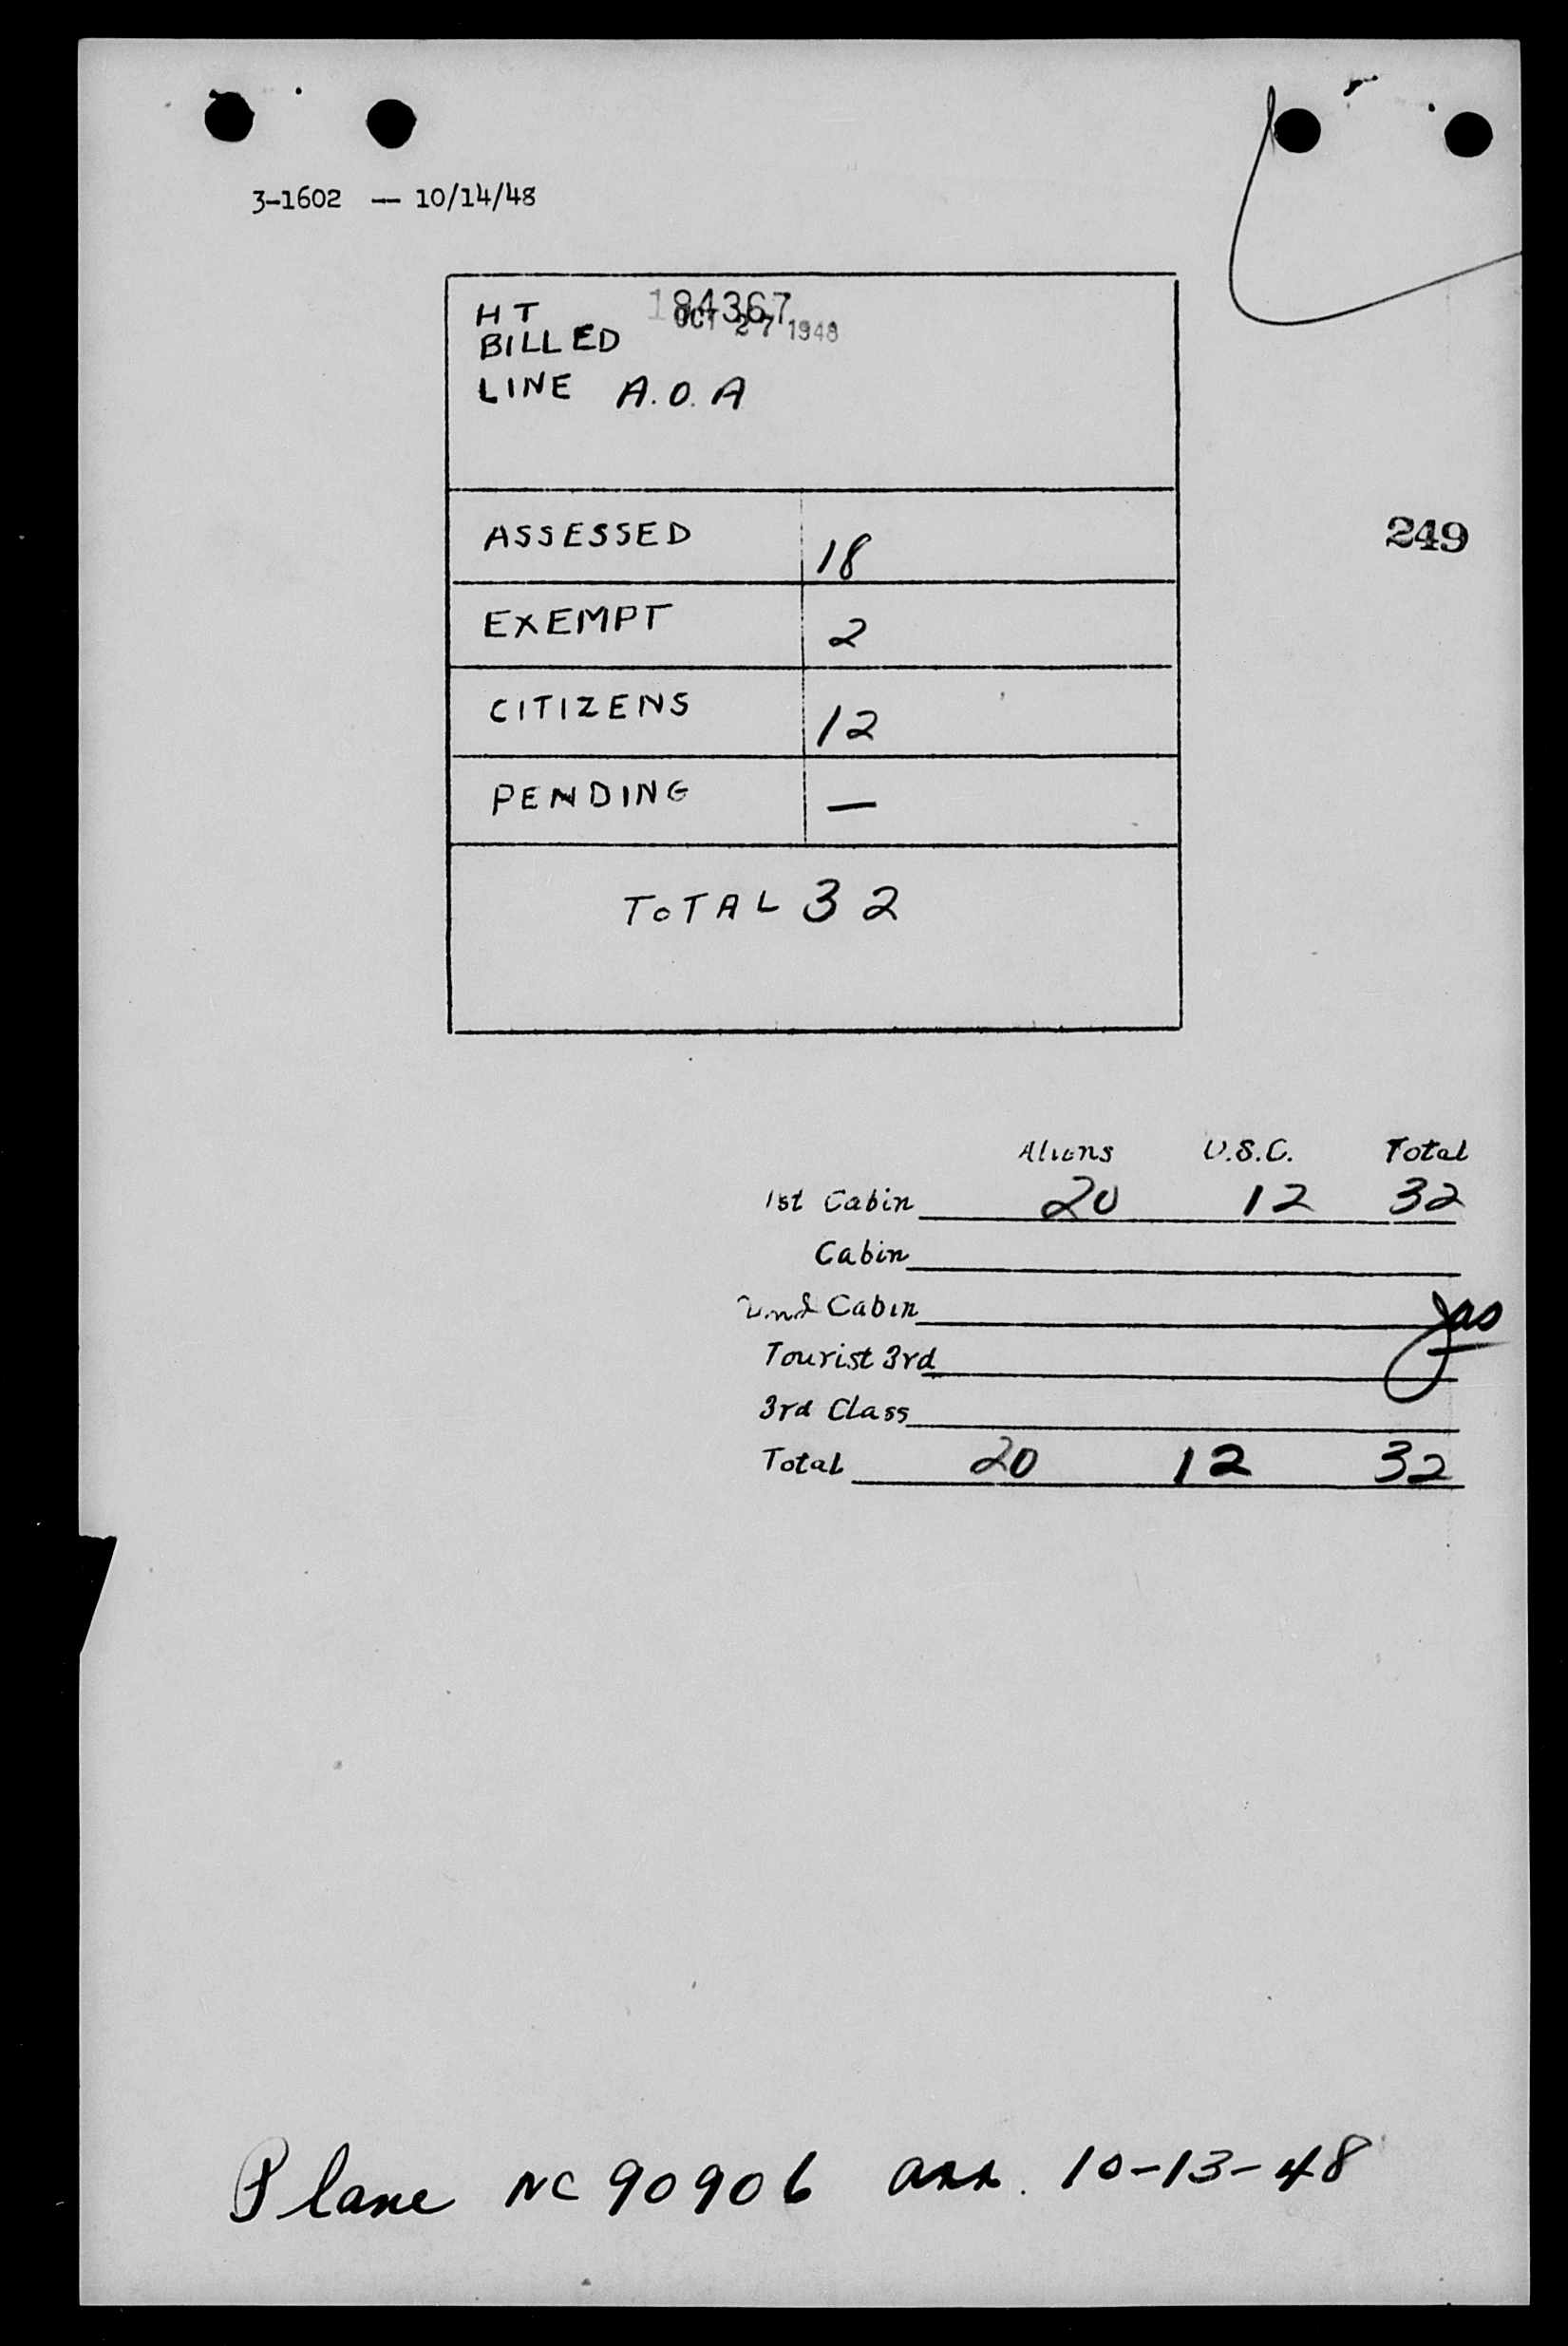 3-1602 — 10/14/48
HT 184367
BILLED OCT 27 1948
LINE A.O.A
249
ASSESSED 18
EXEMPT 2
CITIZENS 12
PENDING —
TOTAL 32
Aliens U.S.C. Total
1st Cabin 20 12 32
Cabin
2nd Cabin
Tourist 3rd
3rd Class
Total 20 12 32
Plane NC 90906 arr. 10-13-48